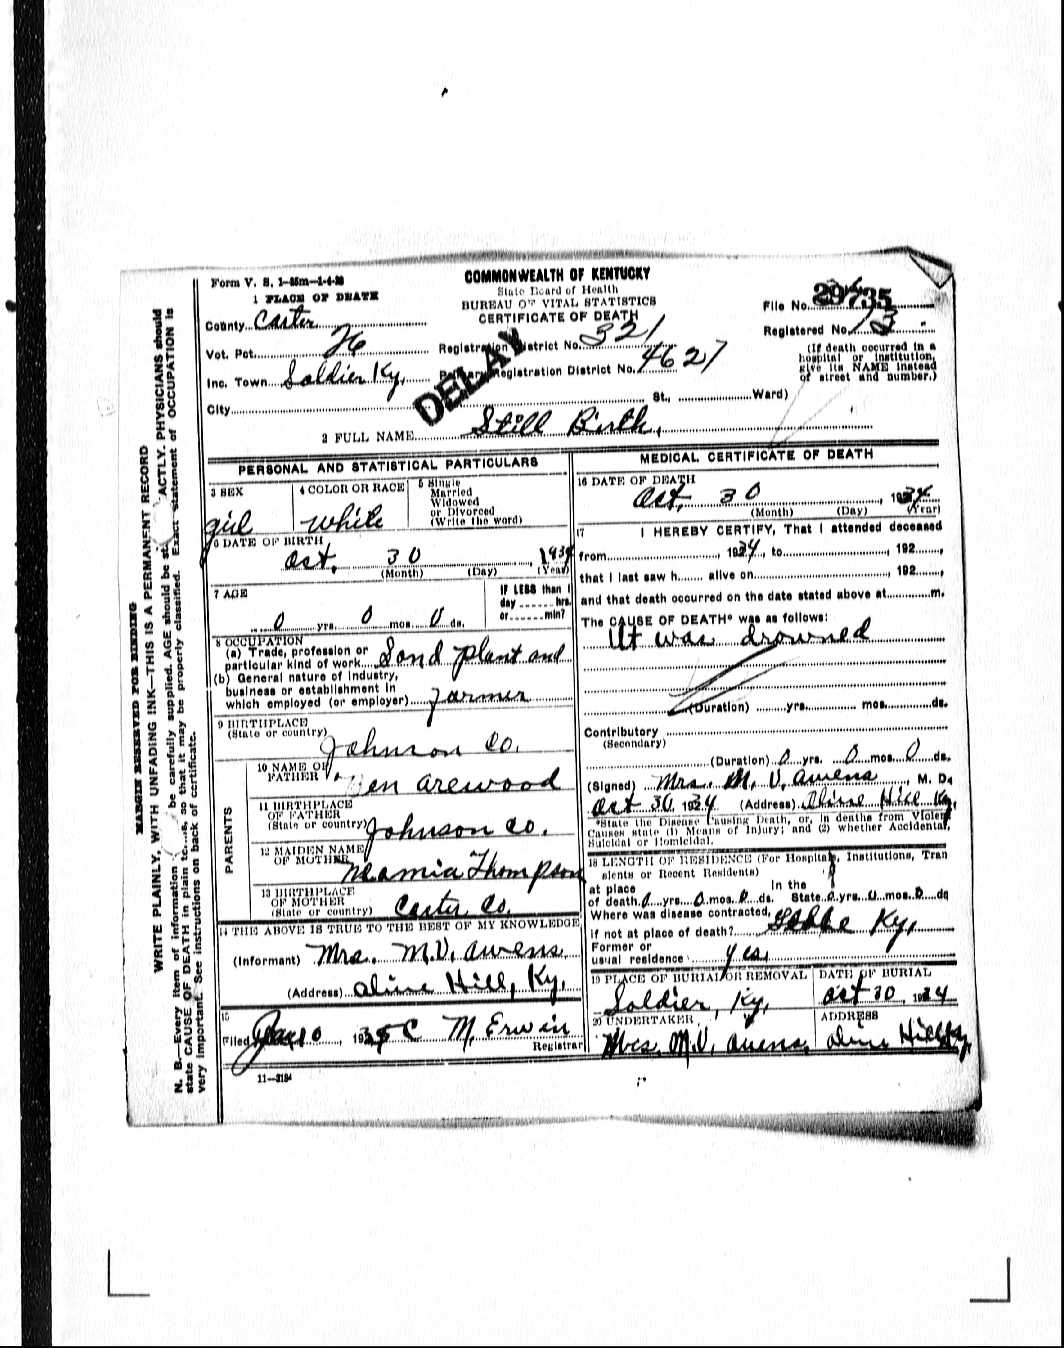 Form V. S. 1-45m-1-4-28
COMMONWEALTH OF KENTUCKY
State Board of Health
BUREAU OF VITAL STATISTICS
CERTIFICATE OF DEATH
1 PLACE OF DEATH
County Carter
Vot. Pct. 26
Inc. Town Soldier Ky.
City St., Ward)
Registration District No. 321
Primary Registration District No. 4627
DELAY
File No. 29735
Registered No. 13
(If death occurred in a
hospital or institution,
give its NAME instead
of street and number.)
2 FULL NAME Still Birth.
PERSONAL AND STATISTICAL PARTICULARS
3 SEX
girl
4 COLOR OR RACE
white
5 Single
Married
Widowed
or Divorced
(Write the word)
6 DATE OF BIRTH
Oct. 30, 1934
(Month) (Day) (Year)
7 AGE
0 yrs. 0 mos. 0 ds.
IF LESS than 1
day hrs.
or min?
8 OCCUPATION
(a) Trade, profession or
particular kind of work Sand plant and
(b) General nature of industry,
business or establishment in
which employed (or employer) Farmer
9 BIRTHPLACE
(State or country)
Johnson Co.
PARENTS
10 NAME OF
FATHER arewood
11 BIRTHPLACE
OF FATHER
(State or country) Johnson Co.
12 MAIDEN NAME
OF MOTHER Thompson
13 BIRTHPLACE
OF MOTHER
(State or country) Carter Co.
14 THE ABOVE IS TRUE TO THE BEST OF MY KNOWLEDGE
(Informant) Mrs. M.V. awens
(Address) oline Hill, Ky.
15
Filed 10, 1935 C M. Erwin
Registrar
11-3184
MEDICAL CERTIFICATE OF DEATH
16 DATE OF DEATH
Oct. 30, 1934
(Month) (Day) (Year)
17 I HEREBY CERTIFY, That I attended deceased
from 1934, to 192
that I last saw h alive on 192
and that death occurred on the date stated above at m.
The CAUSE OF DEATH* was as follows:
It was drowned
(Duration) yrs. mos. ds.
Contributory
(Secondary)
(Duration) 0 yrs. 0 mos. 0 ds.
(Signed) Mrs. M. V. awens, M. D.
Oct 30, 1934 (Address) Oline Hill Ky.
*State the Disease Causing Death, or, in deaths from Violent
Causes state (1) Means of Injury; and (2) whether Accidental,
Suicidal or Homicidal.
18 LENGTH OF RESIDENCE (For Hospitals, Institutions, Tran
sients or Recent Residents)
at place In the
of death 0 yrs. 0 mos. 0 ds. State 0 yrs. 0 mos. 0 ds
Where was disease contracted,
if not at place of death? Ky.
Former or
usual residence yes.
19 PLACE OF BURIAL OR REMOVAL
Soldier, Ky.
DATE OF BURIAL
Oct 30, 1934
20 UNDERTAKER
Mrs. M.V. awens.
ADDRESS
oline Hill Ky.
MARGIN RESERVED FOR BINDING
WRITE PLAINLY, WITH UNFADING INK—THIS IS A PERMANENT RECORD
N. B.—Every item of information be carefully supplied. AGE should be st. ACTLY. PHYSICIANS should
state CAUSE OF DEATH in plain te..s, so that it may be properly classified. Exact statement of OCCUPATION is
very important. See instructions on back of certificate.